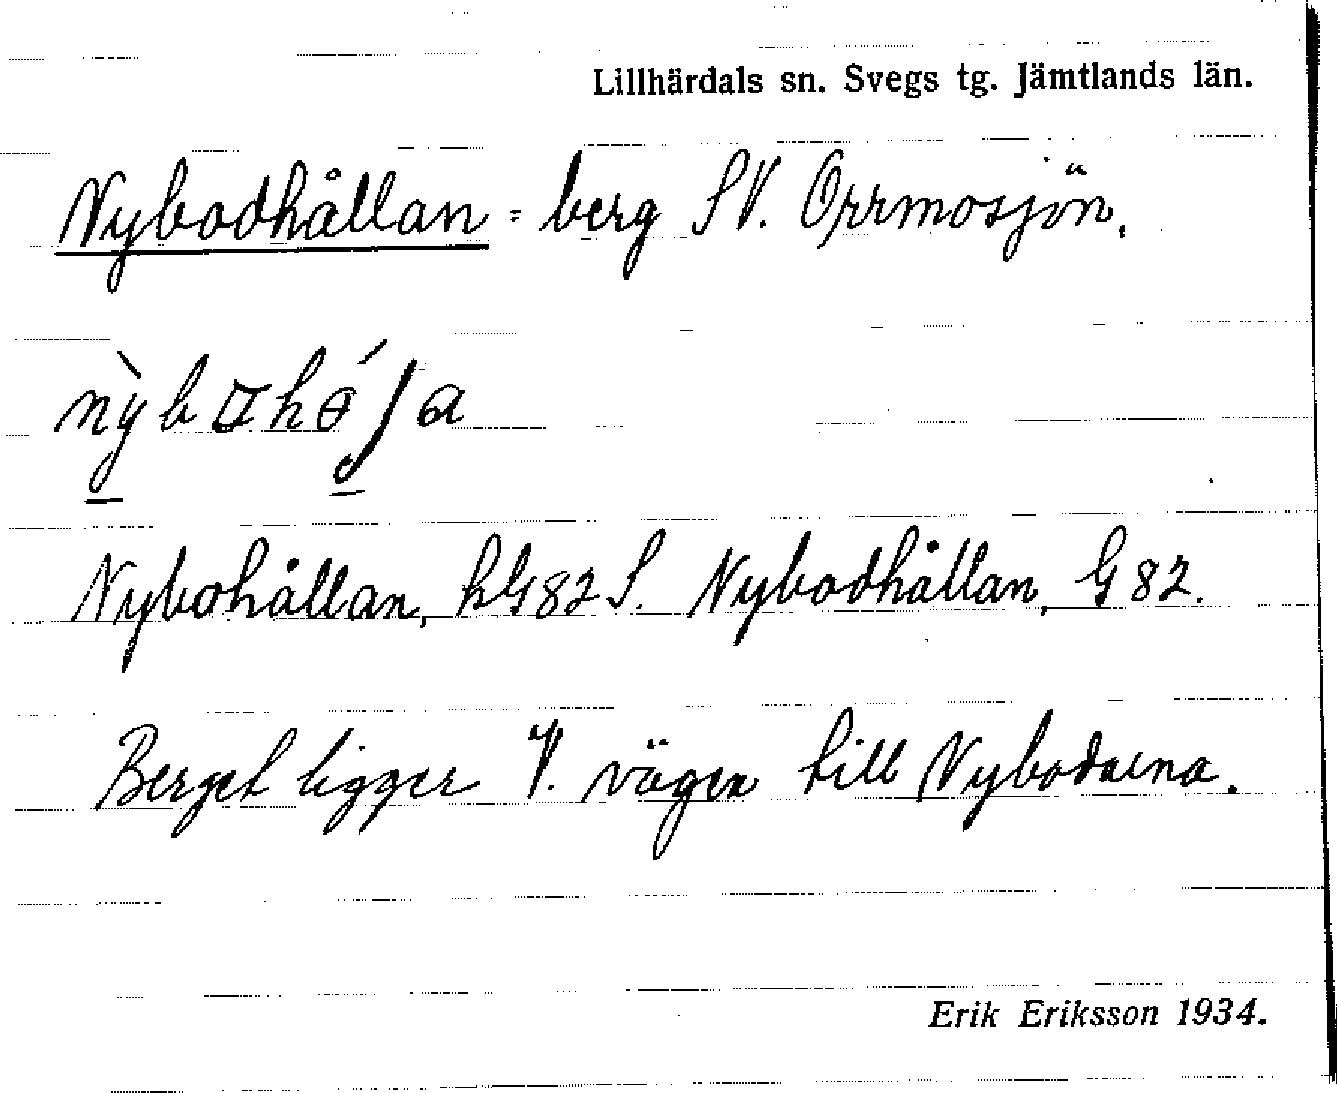 Lillhärdals sn. Svegs tg. Jämtlands län.
Nybodhållan = berg SV. Orrmosjön.
Nybohållan, hG82S. Nybodhållan, G82.
Berget ligger V. vägen till Nybodarna.
Erik Eriksson 1934.